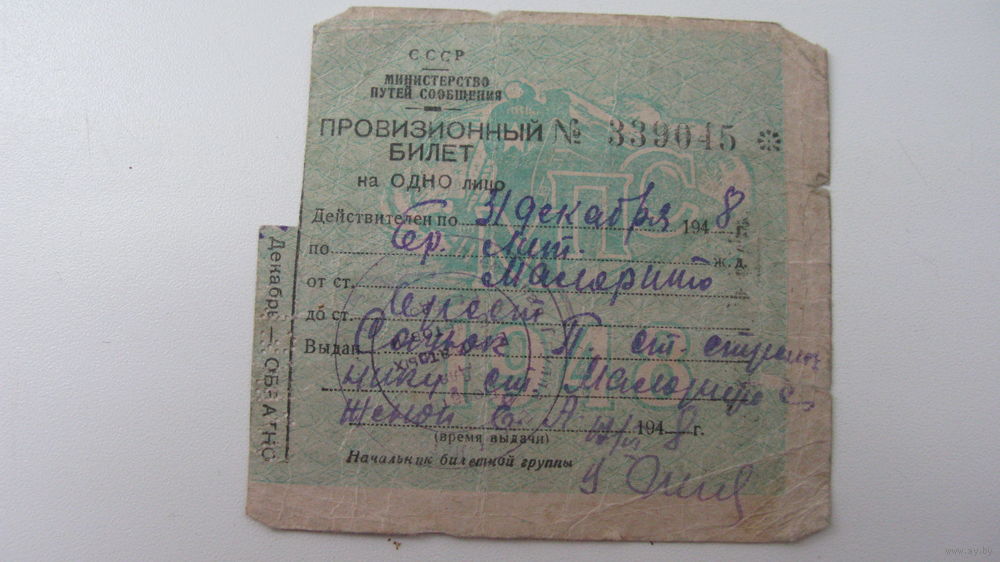 СССР
МИНИСТЕРСТВО
ПУТЕЙ СООБЩЕНИЯ
ПРОВИЗИОННЫЙ
БИЛЕТ
№ 339045
на ОДНО лицо
Действителен по 31 декабря 1948 г.
по Бр. Лит. ж. д.
от ст. Малорито
до ст. Брест
Выдан П ст. стрелоч
нику ст. Малорито с
женой Е. А 1948 г.
(время выдачи)
Начальник билетной группы
Декабрь — ОБРАТНО
МПС
1948
www.ay.by